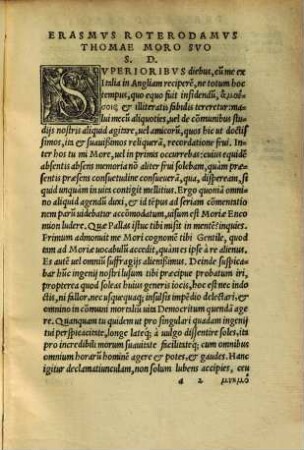 ERASMVS ROTERODAMVS
THOMAE MORO SVO
S. D.
SVPERIORIBVS diebus, cū me ex
Italia in Angliam reciperē, ne totum hoc
tempus, quo equo fuit insidendū,
& illiteratis fabulis tereretur: ma
lui mecū aliquoties, uel de cōmunibus stu
dijs nostris aliquid agitare, uel amicorū, quos hic ut doctis/
simos, ita & suauissimos reliquerā, recordatione frui. In/
ter hos tu mi More, uel in primis occurrebas: cuius equidē
absentis absens memoria nō aliter frui solebam, quàm præ/
sentis præsens consuetudine consueuerā, qua, dispeream, si
quid unquàm in uita contigit mellitius. Ergo quoniā omni/
no aliquid agendū duxi, & id tempus ad seriam commentatio
nem parū uidebatur accōmodatum, uisum est Moriæ Enco
mion ludere. Quæ Pallas istuc tibi misit in mentē? inquies.
Primum admonuit me Mori cognomē tibi Gentile, quod
tam ad Moriæ uocabulū accedit, quàm es ipse à re alienus.
Es autē uel omniū suffragijs alienissimus. Deinde suspica/
bar hūc ingenij nostri lusum tibi præcipue probatum iri,
propterea quòd soleas huius generis iocis, hoc est nec indo/
ctis, ni fallor, nec usquequaq; insulsis impēdio delectari, &
omnino in cōmuni mortaliū uita Democritum quendā age
re. Quanquam tu quidem ut pro singulari quadam ingenij
tui perspicacitate, longe lateq; à uulgo dissentire soles, ita
pro incredibili morum suauitate facilitateq; cum omnibus
omnium horarū hominē agere & potes, & gaudes. Hanc
igitur declamatiunculam, non solum lubens accipies, ceu
a 2